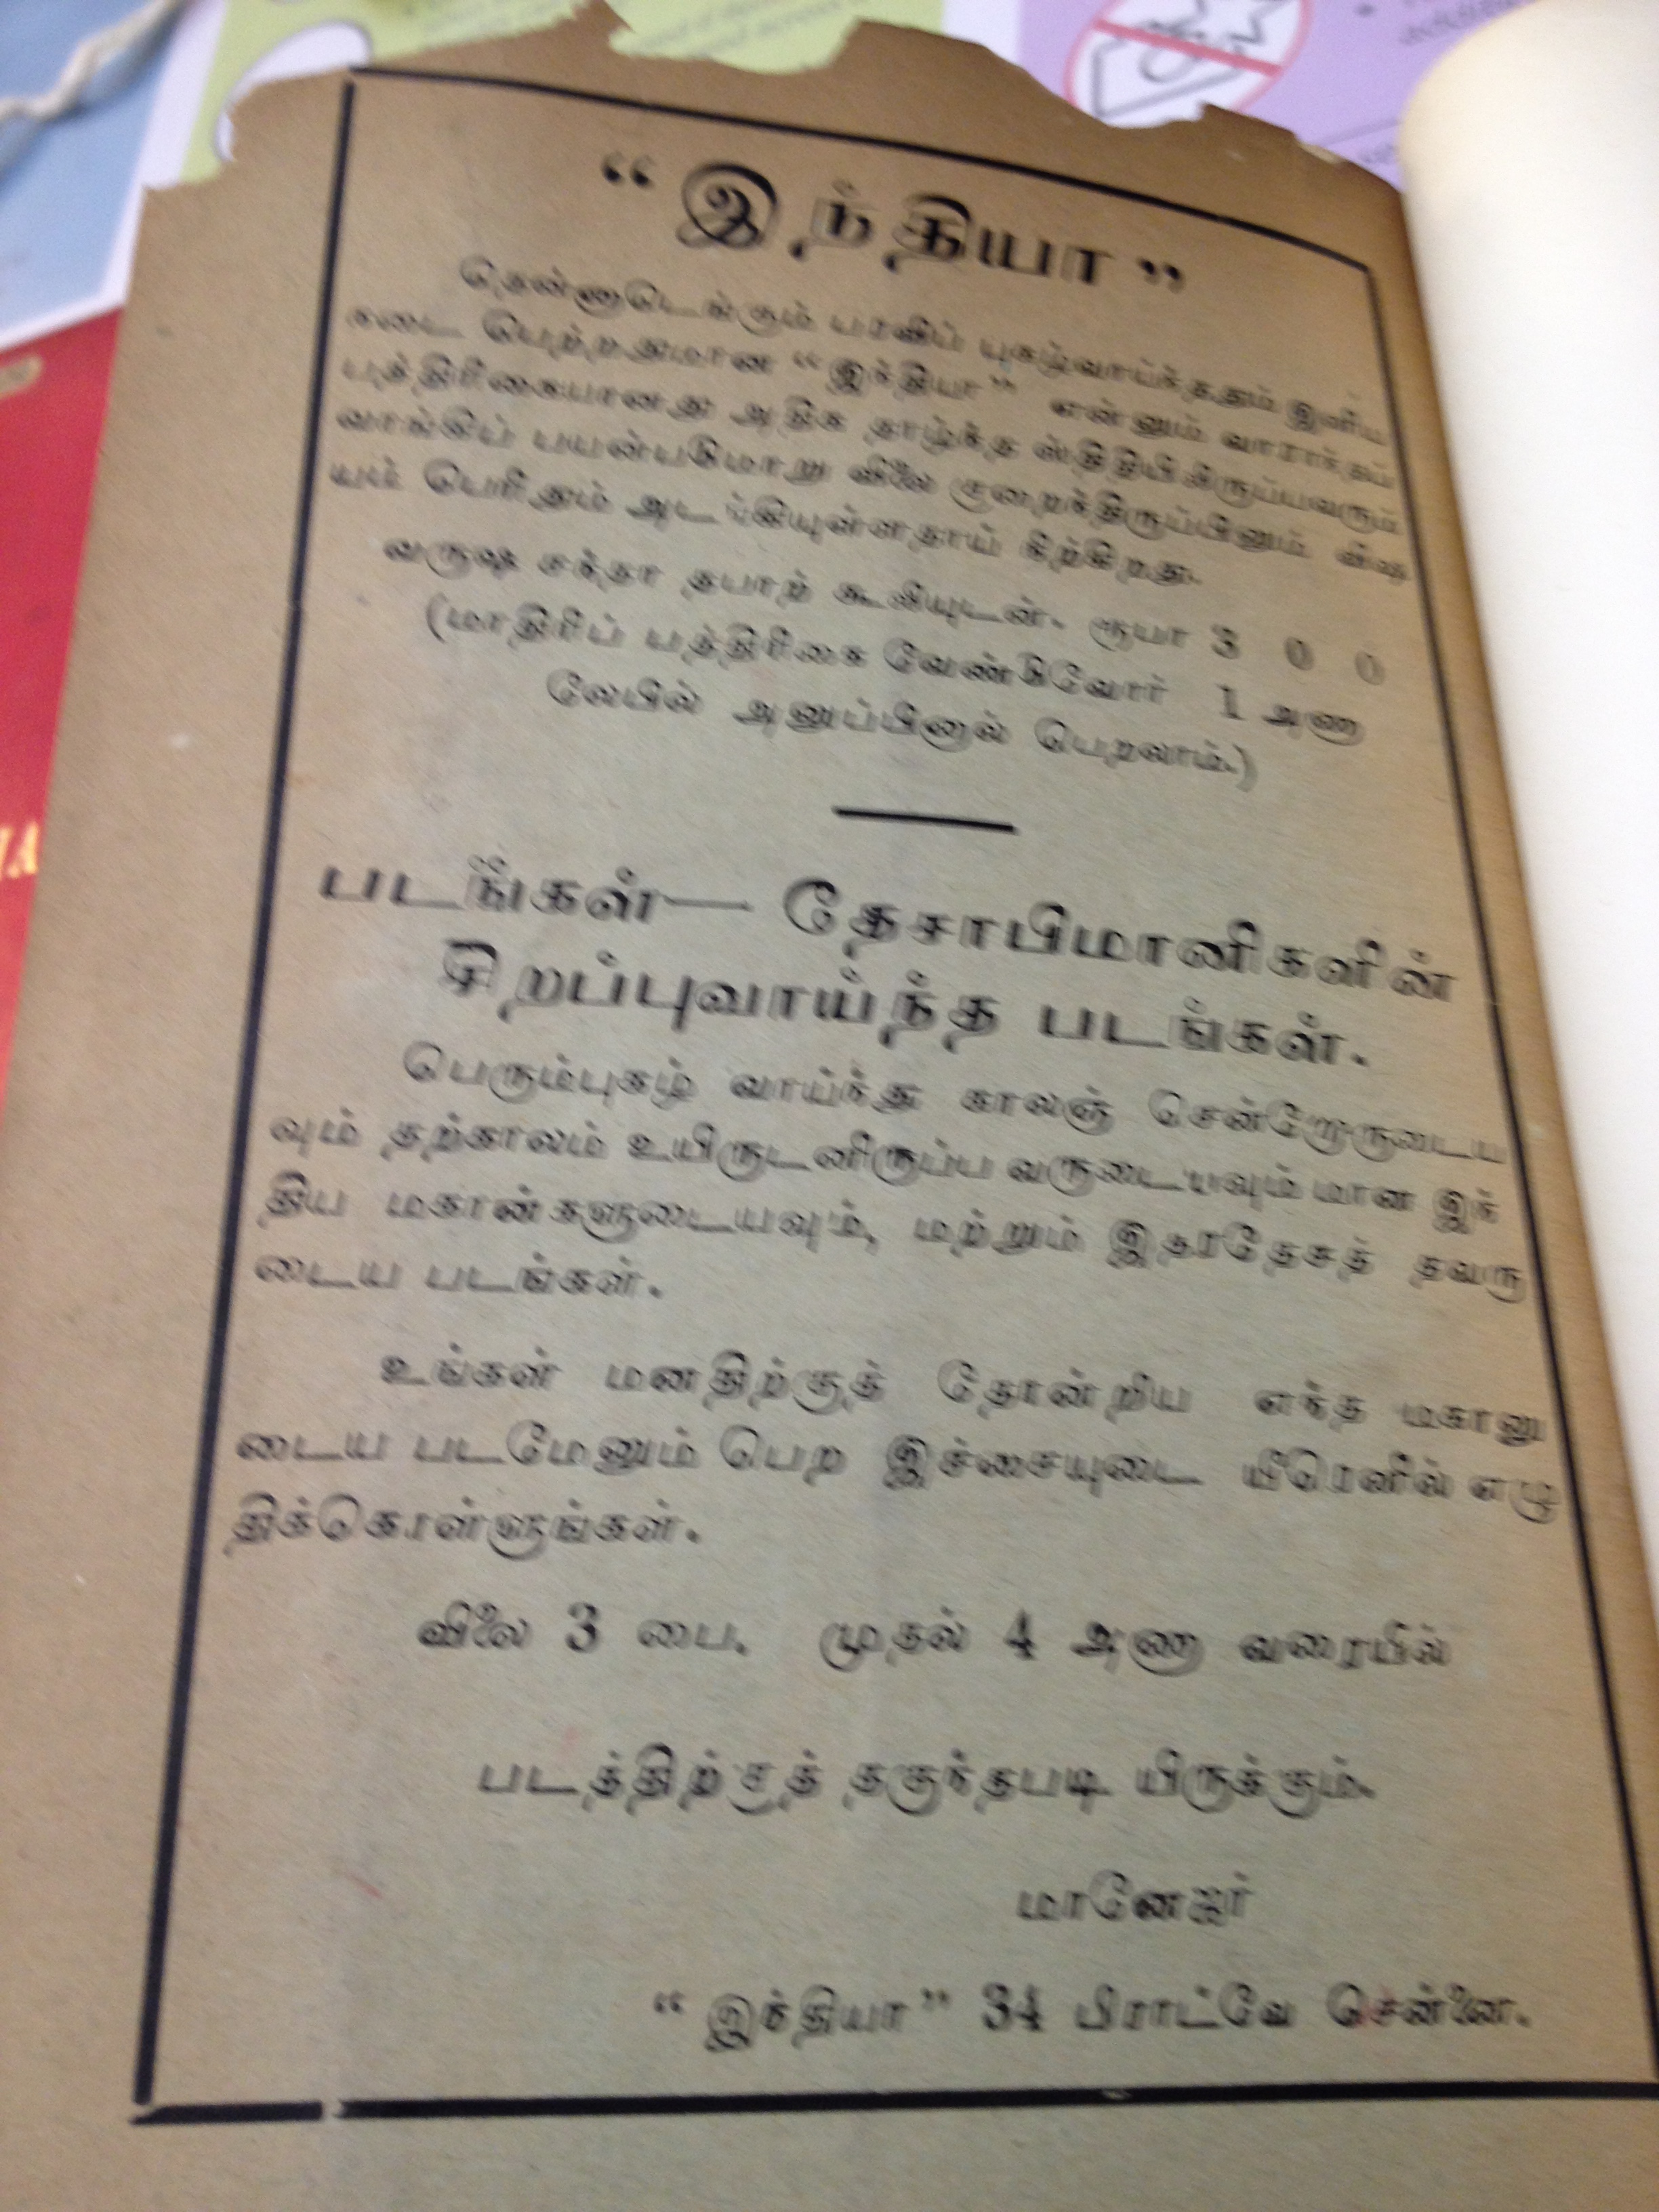 “ இந்தியா ”
தென்னாடெங்கும் பரவிப் புகழ்வாய்ந்ததும் இனிய
நடை பெற்றதுமான “இந்தியா” என்னும் வாராந்தப்
பத்திரிகையானது அதிக தாழ்ந்த ஸ்திதியிலிருப்பவரும்
வாங்கிப் பயன்படுமாறு விலை குறைந்திருப்பினும் விஷ
யம் பெரிதும் அடங்கியுள்ளதாய் நிற்கிறது.
வருஷ சந்தா தபாற் கூலியுடன். ரூபா 3 0 0
(மாதிரிப் பத்திரிகை வேண்டுவோர் 1 அணா
லேபில் அனுப்பினால் பெறலாம்.)
படங்கள்— தேசாபிமானிகளின்
சிறப்புவாய்ந்த படங்கள்.
பெரும்புகழ் வாய்ந்து காலஞ் சென்றோருடைய
வும் தற்காலம் உயிருடனிருப்ப வருடையவும் மான இந்
திய மகான்களுடையவும், மற்றும் இதரதேசத் தவரு
டைய படங்கள்.
உங்கள் மனதிற்குத் தோன்றிய எந்த மகானு
டைய படமேனும் பெற இச்சையுடை யீரெனில் எழு
திக்கொள்ளுங்கள்.
விலை 3 பை. முதல் 4 அணா வரையில்
படத்திற்குத் தகுந்தபடி யிருக்கும்.
மானேஜர்
“ இந்தியா ” 34 பிராட்வே சென்னை.